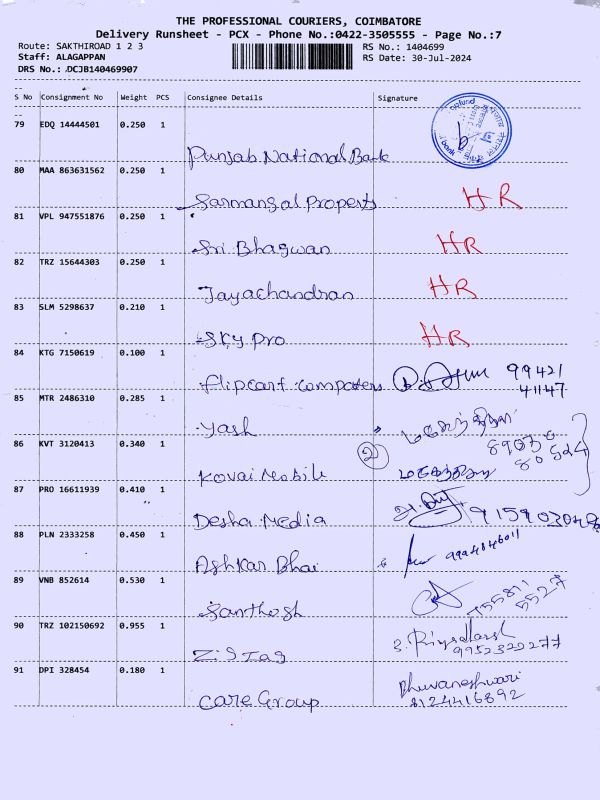 THE PROFESSIONAL COURIERS, COIMBATORE
Delivery Runsheet - PCX - Phone No.:0422-3505555 - Page No.:7
Route: SAKTHIROAD 1 2 3 RS No.: 1404699
Staff: ALAGAPPAN RS Date: 30-Jul-2024
DRS No.: DCJB140469907
S No Consignment No Weight PCS Consignee Details Signature
79 EDQ 14444501 0.250 1
Punjab National Bank
80 MAA 863631562 0.250 1
Sarmangal Propests HR
81 VPL 947551876 0.250 1
Sri Bhagwan HR
82 TRZ 15644303 0.250 1
Jayachandran HR
83 SLM 5298637 0.210 1
Sky pro HR
84 KTG 7150619 0.100 1
flipcart computers 99421
41147
85 MTR 2486310 0.285 1
Yash
86 KVT 3120413 0.340 1
Kovai Mobile
87 PRO 16611939 0.410 1
Desha Media
88 PLN 2333258 0.450 1
Ashkar Bhai 9994846011
89 VNB 852614 0.530 1
Santhosh 75581
5527
90 TRZ 102150692 0.955 1
Zigzag
91 DPI 328454 0.180 1
Care Group Bhuvaneshwari
8124416892